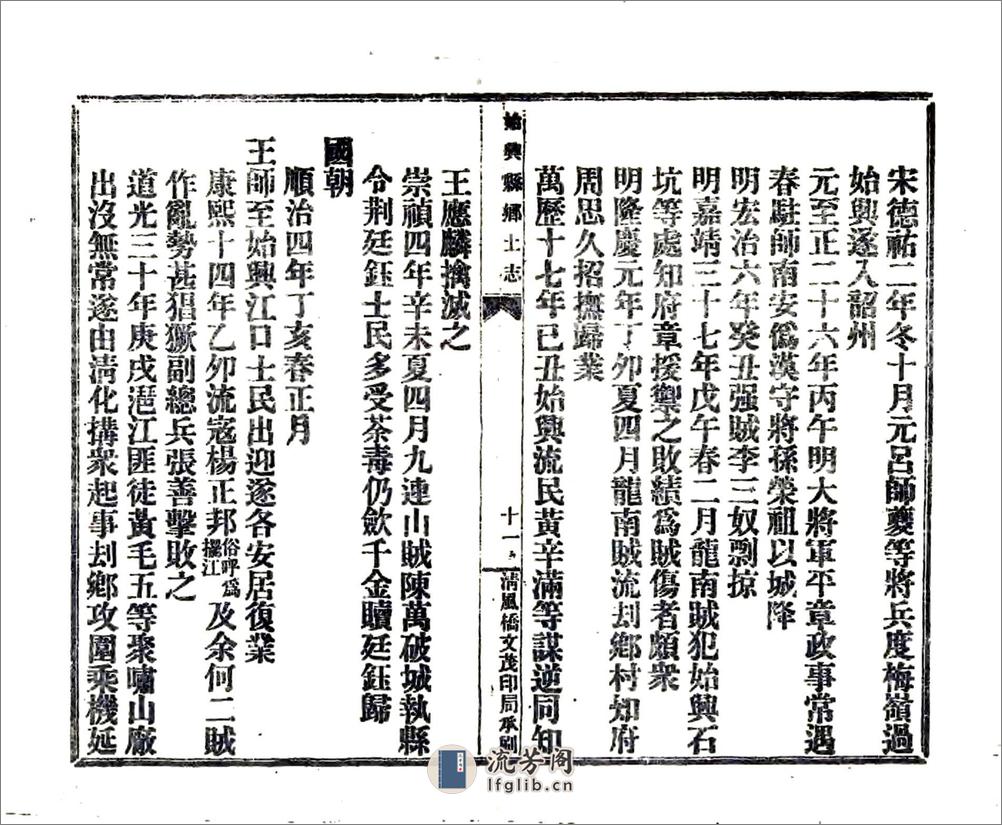 宋德祐二年冬十月元呂師夔等將兵度梅嶺過
始興遂入韶州
元至正二十六年丙午明大將軍平章政事常遇
春駐師南安僞漢守將孫榮祖以城降
明宏治六年癸丑强賊李三奴剽掠
明嘉靖三十七年戊午春二月龍南賊犯始興石
坑等處知府章援禦之敗績爲賊傷者頗衆
明隆慶元年丁卯夏四月龍南賊流刦鄉村知府
周思久招撫歸業
萬歷十七年已丑始興流民黃辛滿等謀逆同知
始興縣鄉土志
十一
清風橋文茂印局承刷
王應麟擒滅之
崇禎四年辛未夏四月九連山賊陳萬破城執縣
令荆廷鈺士民多受荼毒仍歛千金贖廷鈺歸
國朝
順治四年丁亥春正月
王師至始興江口士民出迎遂各安居復業
康熙十四年乙卯流寇楊正邦俗呼爲擺江及余何二賊
作亂勢甚猖獗副總兵張善擊敗之
道光三十年庚戌湴江匪徒黃毛五等聚嘯山廠
出沒無常遂由清化搆衆起事刦鄉攻圍乘機延
流芳阁
lfglib.cn